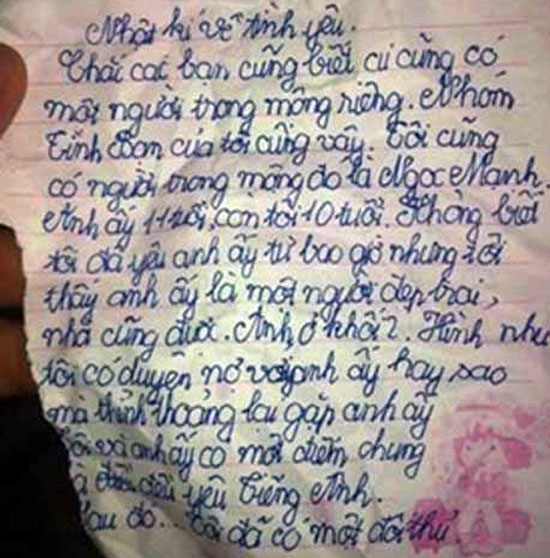 Nhật kí về tình yêu.
Chắc các bạn cũng biết cứ cũng có
một người trong mộng riêng. Nhóm
Tình Bạn của tôi cũng vậy. Tôi cũng
có người trong mộng đó là Ngọc Mạnh.
Anh ấy 11 tuổi, còn tôi 10 tuổi. Không biết
tôi đã yêu anh ấy từ bao giờ nhưng tôi
thấy anh ấy là một người đẹp trai,
nhà cũng được. Anh ở khối 2. Hình như
tôi có duyên nợ với anh ấy hay sao
mà thỉnh thoảng lại gặp anh ấy
Tôi và anh ấy có một điểm chung
là đều yêu Tiếng Anh.
Sau đó... Tôi đã có một đối thủ.